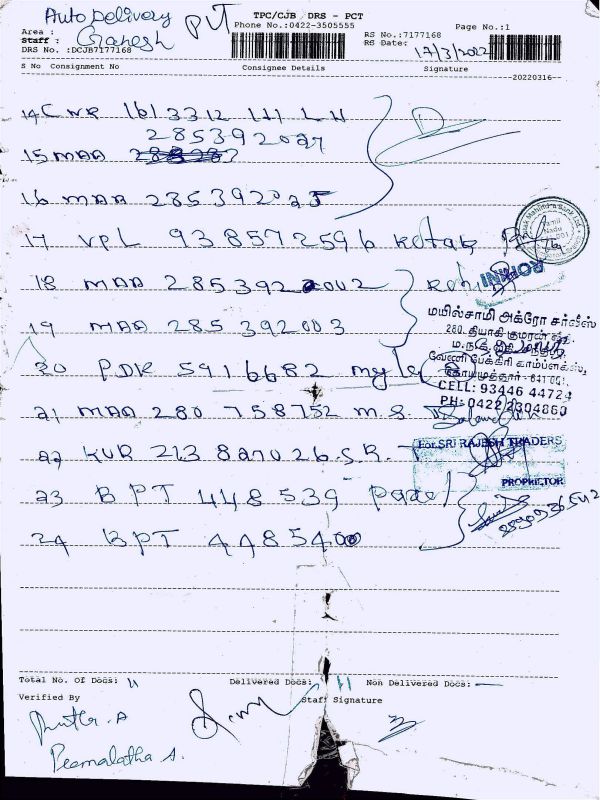 Auto Delivery PVT
TPC/CJB DRS - PCT
Phone No.:0422-3505555
Page No.:1
Area :
Staff : Ganesh
RS No.:7177168
DRS No. :DCJB7177168
RS Date: 17/3/2022
S No Consignment No Consignee Details Signature
20220316
14 CNR 161 3312
285392027
15 MAA
16 MAA 285392025
17 VPL 938572596 kotak
18 MAA 285392002
ROHINI
19 MAA 285392003
மயில்சாமி அக்ரோ சர்வீஸ்
280, தியாகி குமரன் வீதி,
20 PDK 5916682
CELL: 93446 44724
PH: 0422 2304860
21 MAA 280758752 M.S.
For SRI RAJESH TRADERS
22 KUR 213827026 S.R.T
PROPRIETOR
23 BPT 448539
24 BPT 448540
Total No. Of Docs: 11 Delivered Docs: 11 Non Delivered Docs: —
Verified By Staff Signature
Peemalatha S.